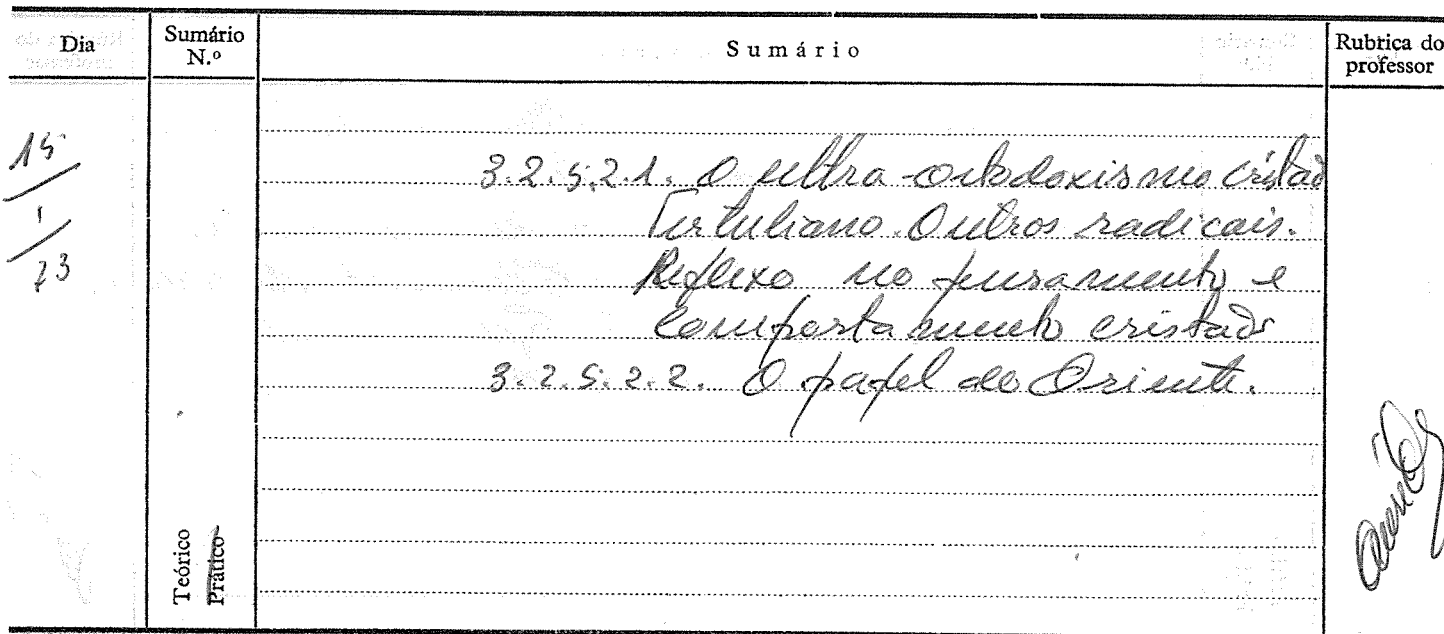 Dia
Sumário N.º
Sumário
Rubrica do professor
15/1/73
3.2.5.2.1. O ultra-ortodoxismo cristão
Tertuliano. Outros radicais.
Reflexo no pensamento e
comportamento cristão
3.2.5.2.2. O papel do Oriente.
Teórico
Prático